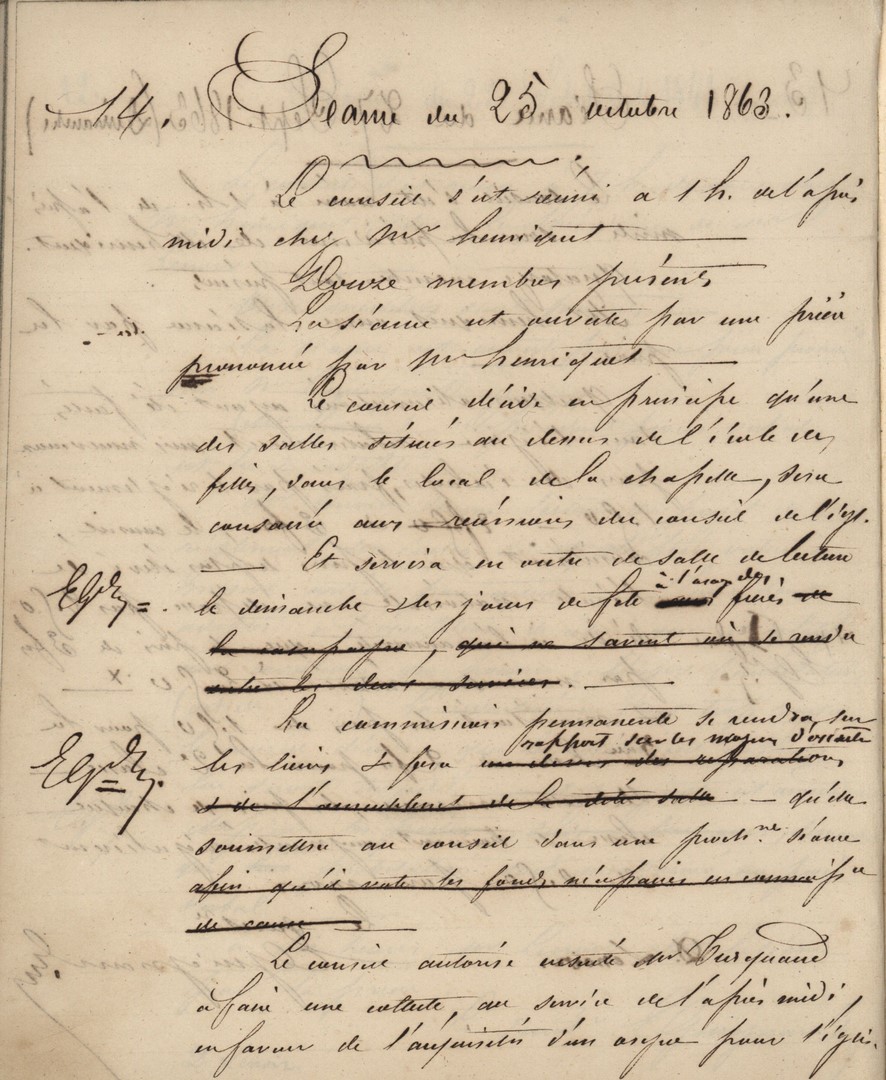 14. Séance du 25 octobre 1863.
Le conseil s'est réuni a 1 h. de l'après
midi chez Mr henriquet
Douze membres présents
La séance est ouverte par une prière
prononcée par Mr henriquet
Le conseil décide en principe qu'une
des salles situées au dessus de l'école des
filles, dans le local de la chapelle, sera
consacrée aux réunions du conseil de l'égl.
Et servira en outre de salle de lecture
à l'usage des
le dimanche & les jours de fête frères de
la campagne, qui ne savent où se rendre
entre les deux services.
La commission permanente se rendra sur
rapport sur les moyens
les lieux & fera un devis des réparations
& de l'ameublement de la dite salle — qu'elle
soumettra au conseil dans une proch.ne séance
afin qu'il vote les fonds nécessaires en connaissce
de cause
Le conseil autorise Mr Turquand
à faire une collecte, au service de l'après midi,
en faveur de l'acquisition d'un orgue pour l'églis.